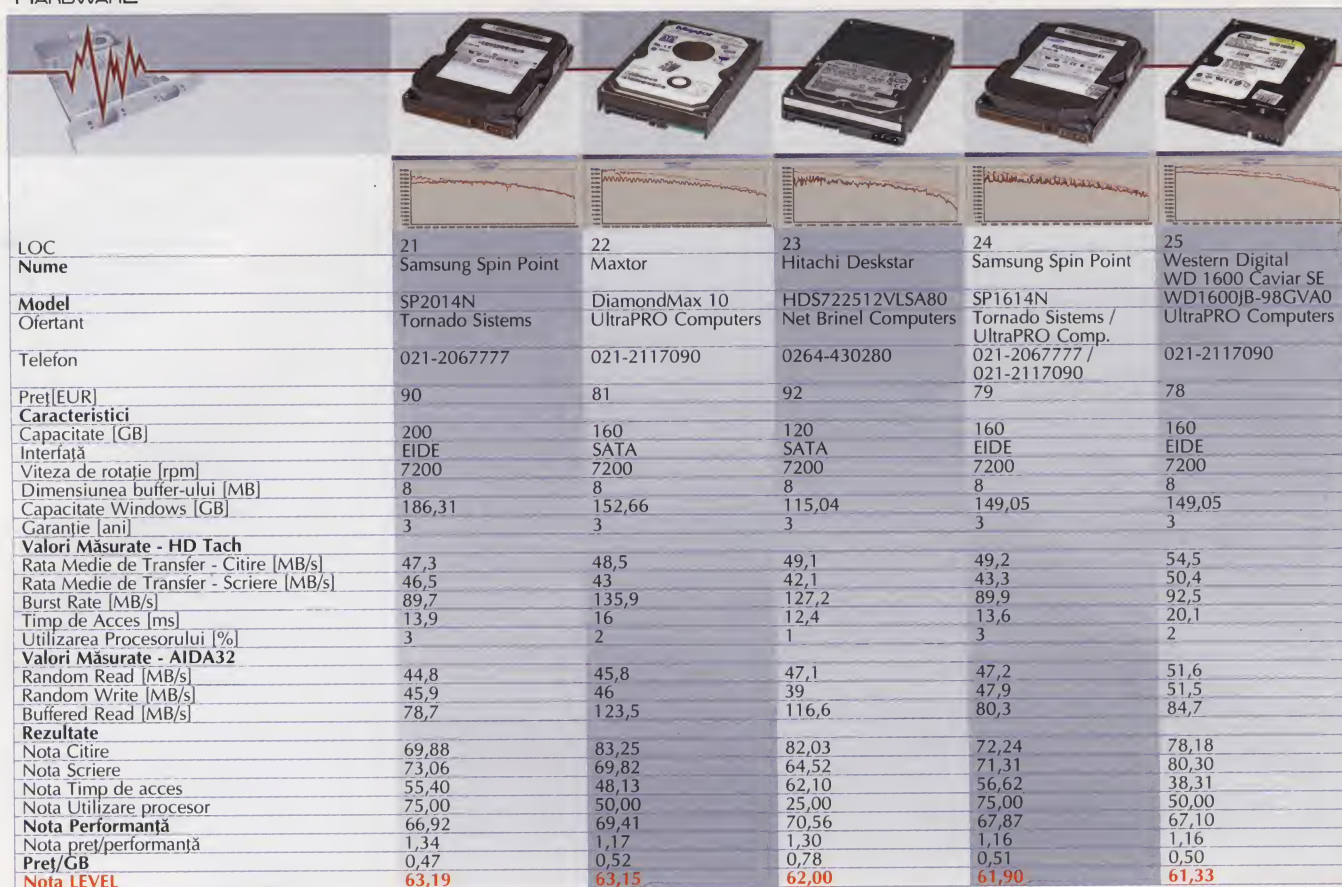 HARDWARE
Maxtor
LOC 21 22 23 24 25
Nume Samsung Spin Point Maxtor Hitachi Deskstar Samsung Spin Point Western Digital
WD 1600 Caviar SE
Model SP2014N DiamondMax 10 HDS722512VLSA80 SP1614N WD1600JB-98GVA0
Ofertant Tornado Sistems UltraPRO Computers Net Brinel Computers Tornado Sistems / UltraPRO Computers
UltraPRO Comp.
Telefon 021-2067777 021-2117090 0264-430280 021-2067777 / 021-2117090
021-2117090
Preț[EUR] 90 81 92 79 78
Caracteristici
Capacitate [GB] 200 160 120 160 160
Interfață EIDE SATA SATA EIDE EIDE
Viteza de rotație [rpm] 7200 7200 7200 7200 7200
Dimensiunea buffer-ului [MB] 8 8 8 8 8
Capacitate Windows [GB] 186,31 152,66 115,04 149,05 149,05
Garanție [ani] 3 3 3 3 3
Valori Măsurate - HD Tach
Rata Medie de Transfer - Citire [MB/s] 47,3 48,5 49,1 49,2 54,5
Rata Medie de Transfer - Scriere [MB/s] 46,5 43 42,1 43,3 50,4
Burst Rate [MB/s] 89,7 135,9 127,2 89,9 92,5
Timp de Acces [ms] 13,9 16 12,4 13,6 20,1
Utilizarea Procesorului [%] 3 2 1 3 2
Valori Măsurate - AIDA32
Random Read [MB/s] 44,8 45,8 47,1 47,2 51,6
Random Write [MB/s] 45,9 46 39 47,9 51,5
Buffered Read [MB/s] 78,7 123,5 116,6 80,3 84,7
Rezultate
Nota Citire 69,88 83,25 82,03 72,24 78,18
Nota Scriere 73,06 69,82 64,52 71,31 80,30
Nota Timp de acces 55,40 48,13 62,10 56,62 38,31
Nota Utilizare procesor 75,00 50,00 25,00 75,00 50,00
Nota Performanță 66,92 69,41 70,56 67,87 67,10
Nota preț/performanță 1,34 1,17 1,30 1,16 1,16
Preț/GB 0,47 0,52 0,78 0,51 0,50
Nota LEVEL 63,19 63,15 62,00 61,90 61,33